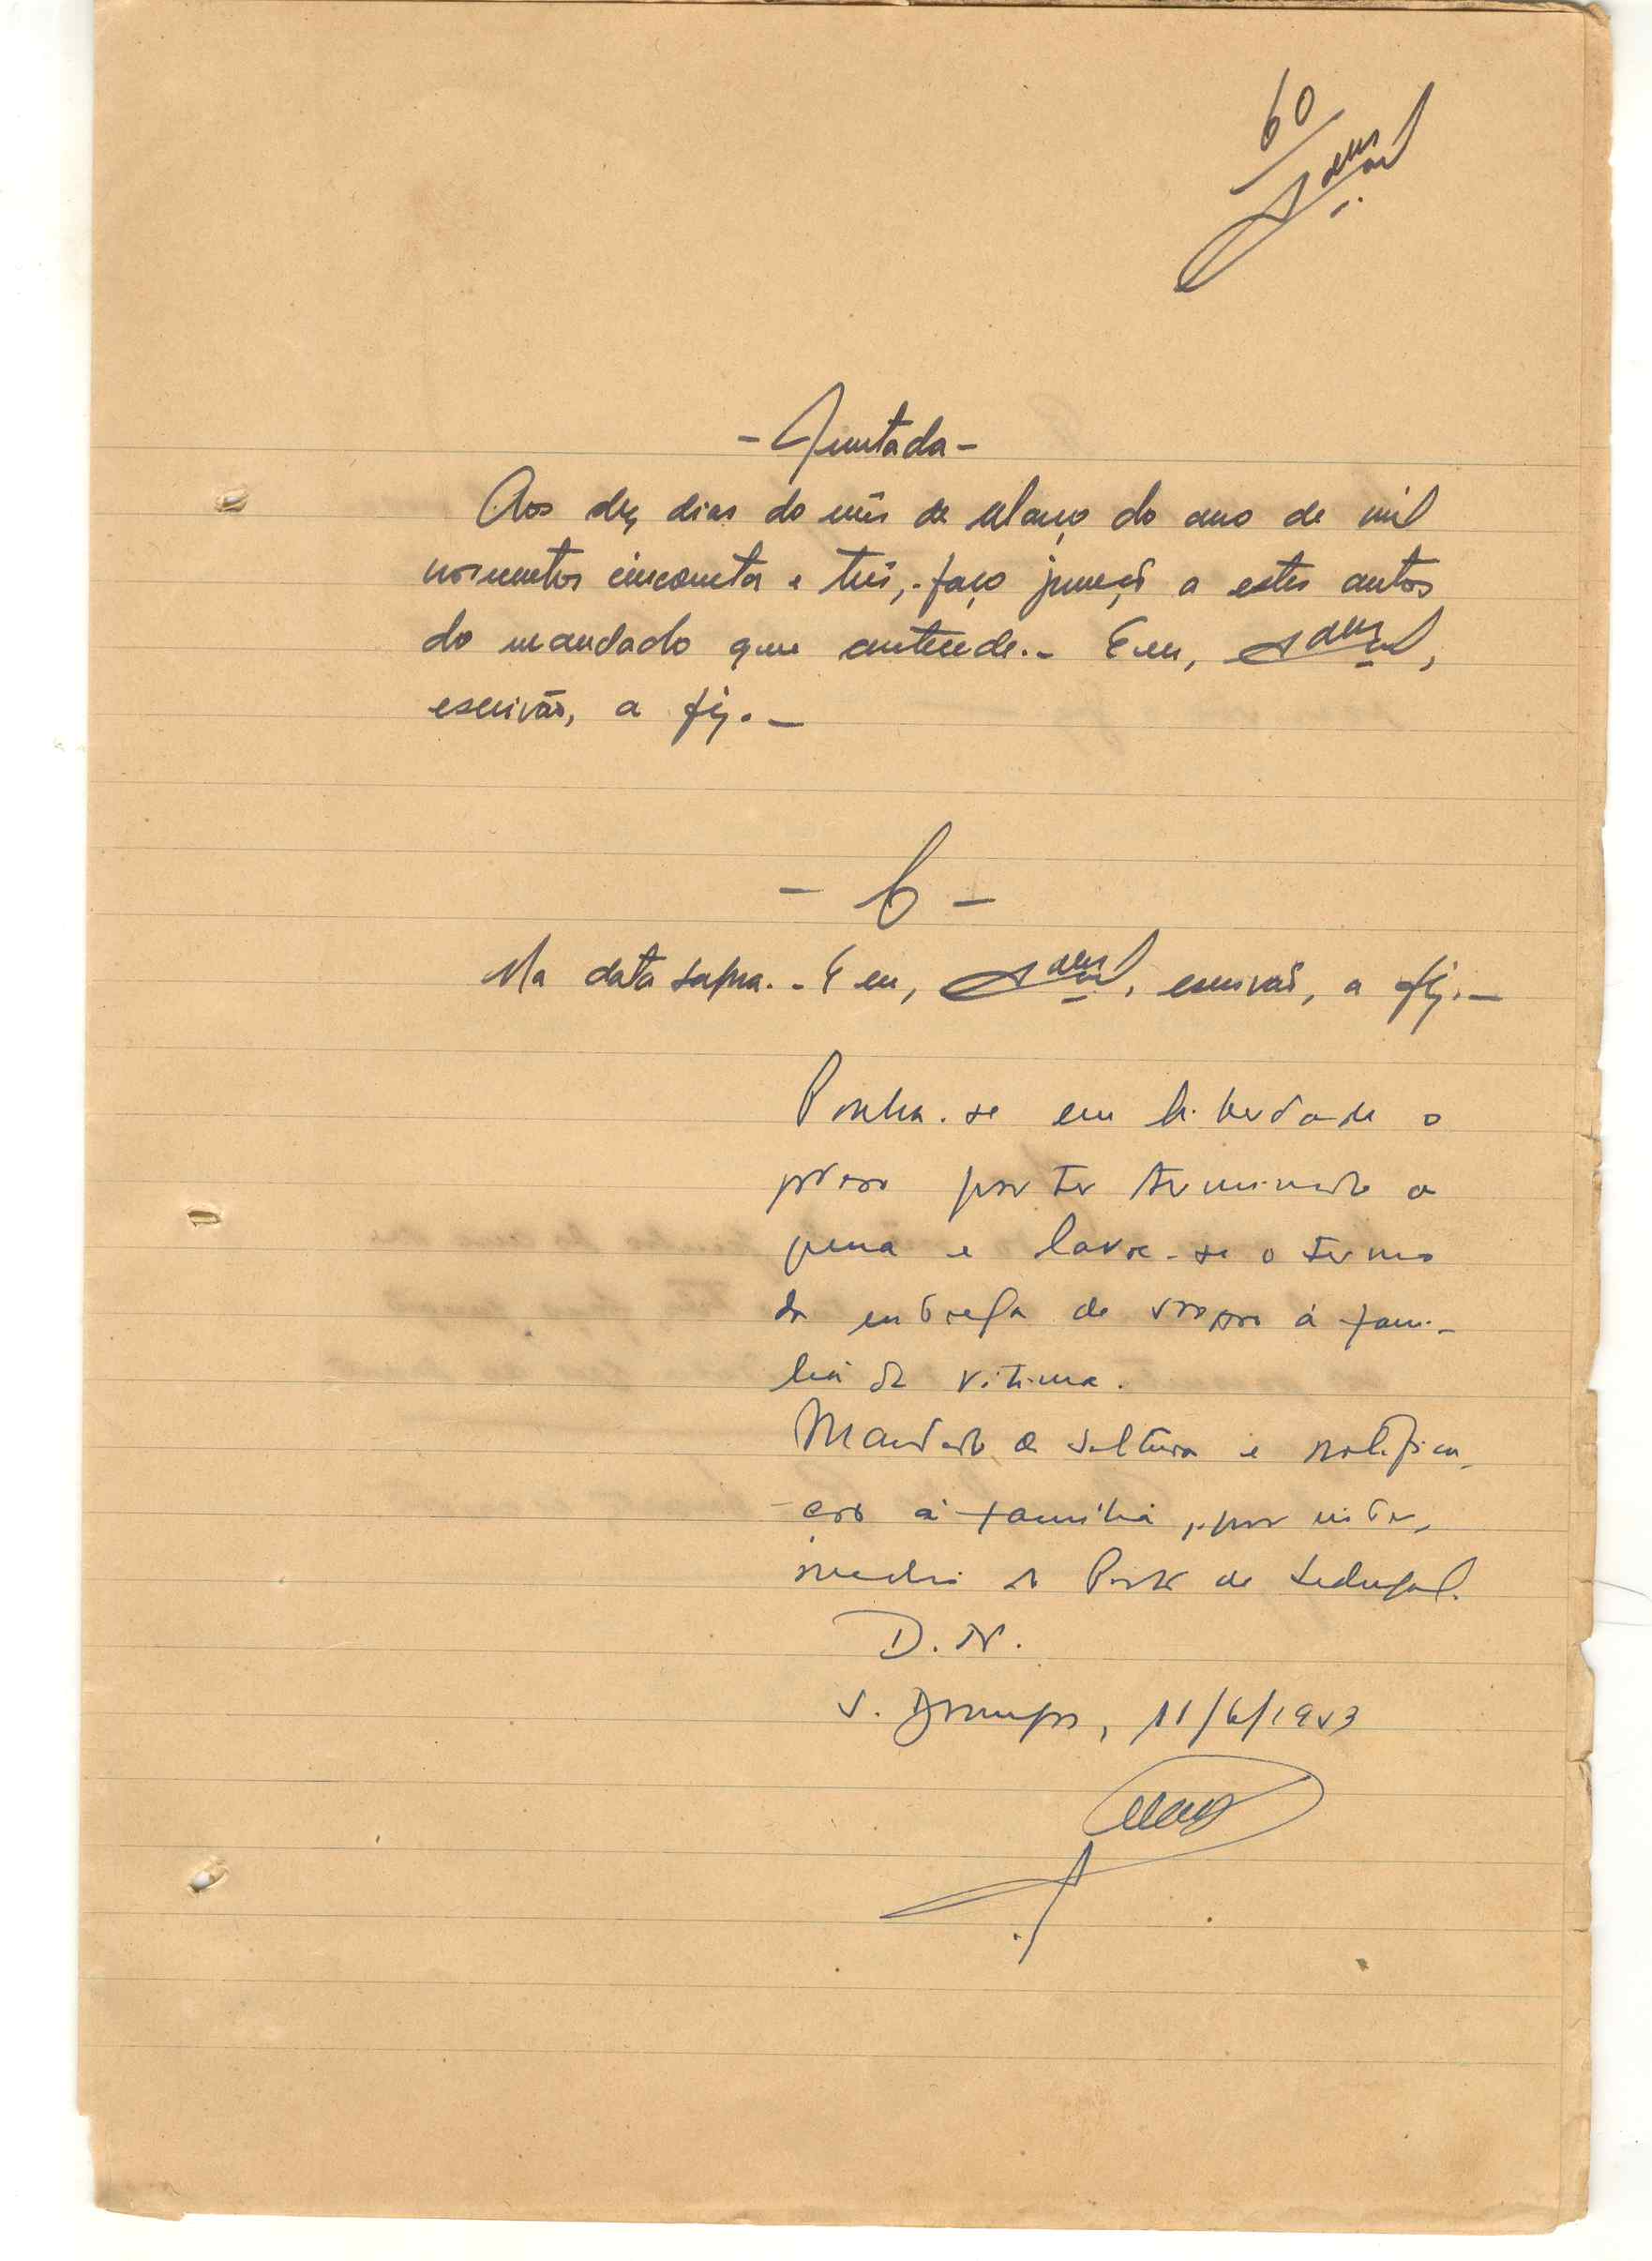 60
- Juntada -
Aos dez dias do mês de Março do ano de mil
novecentos cincoenta e três, faço junção a estes autos
do mandado que antecede.- E eu,
escrivão, a fiz.-
- C -
Na data supra.- E eu, , escrivão, a fiz.-
Ponha-se em liberdade o
preso por ter terminado a
pena e lavre-se o termo
da entrega de à famí-
lia da vítima.
Mandado de soltura e notifica-
ção à família, por inter-
médio do Posto de
D. N.
11/6/1953